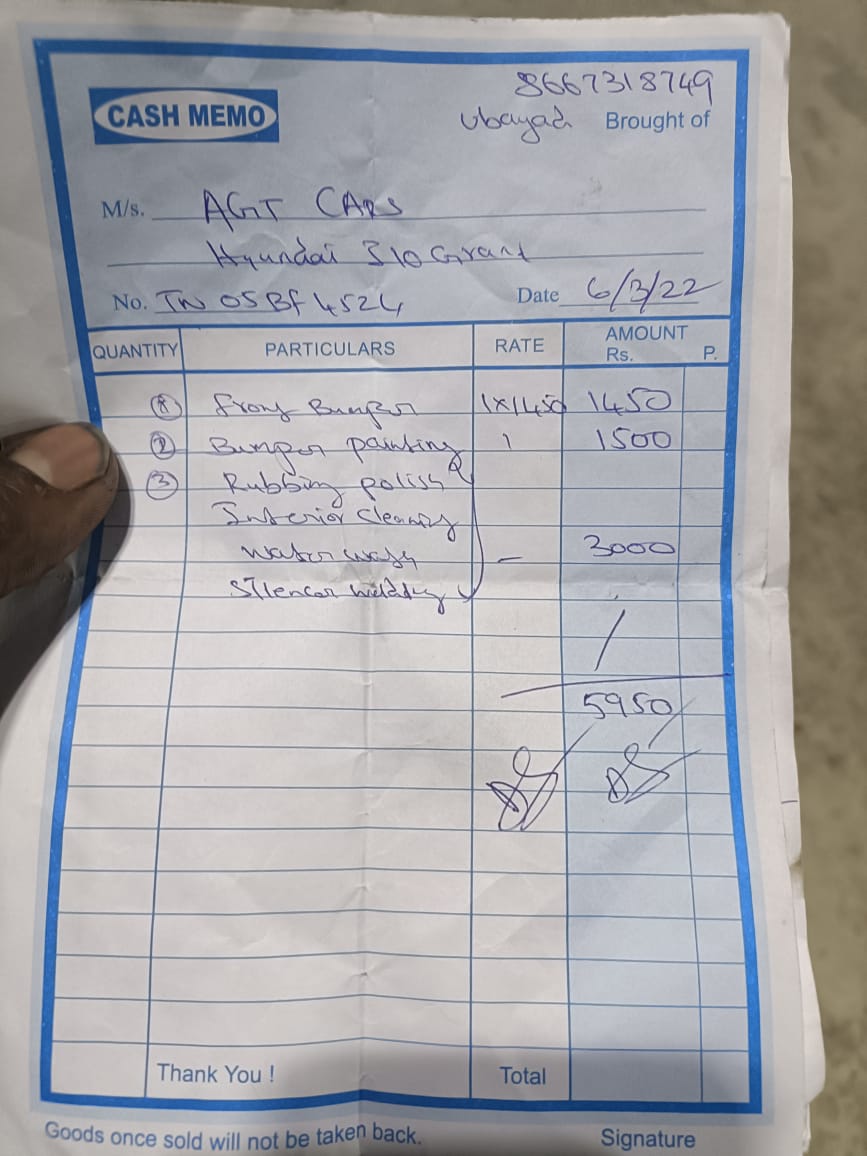 8667318749
CASH MEMO
Ubayad Brought of
M/s. AGT CARS
Hyundai I10 Grant
No. TN 05 Bf 4524 Date 6/3/22
QUANTITY PARTICULARS RATE AMOUNT Rs. P.
① Front Bumper 1x1450 1450
② Bumper painting 1 1500
③ Rubbing polish
Interior Cleaning
Water wash – 3000
Silencor welding
5950
Thank You ! Total
Goods once sold will not be taken back. Signature